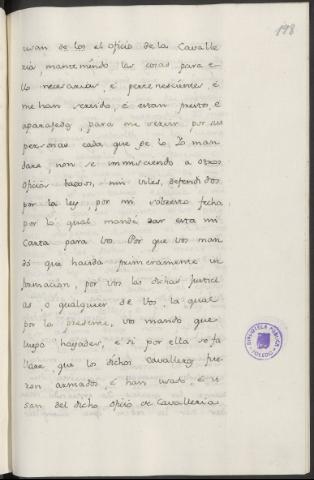 198
usan de los el oficio de la Cavalle
ria, manteniendo las cosas para e
llo necesarias, é pertenescientes, é
me han servido, é estan prestos, é
aparejados, para me servir por sus
personas cada que Yo lo man
dare, non se inmisciendo a otros
oficios baxos, nin viles, defendidos
por la ley, por mi sobresto fecha,
por lo qual mandé dar esta mi
Carta para vos. Por que vos man
do que havida primeramente in
formacion, por vos las dichas justici
as, o qualquier de vos, la qual
por la presente, vos mando que
luego hayades, e si por ella se fa
llare, que los dichos Cavalleros fue
ron armados, é han usado, é u
san del dicho oficio de Cavalleria
BIBLIOTECA PUBLICA
TOLEDO